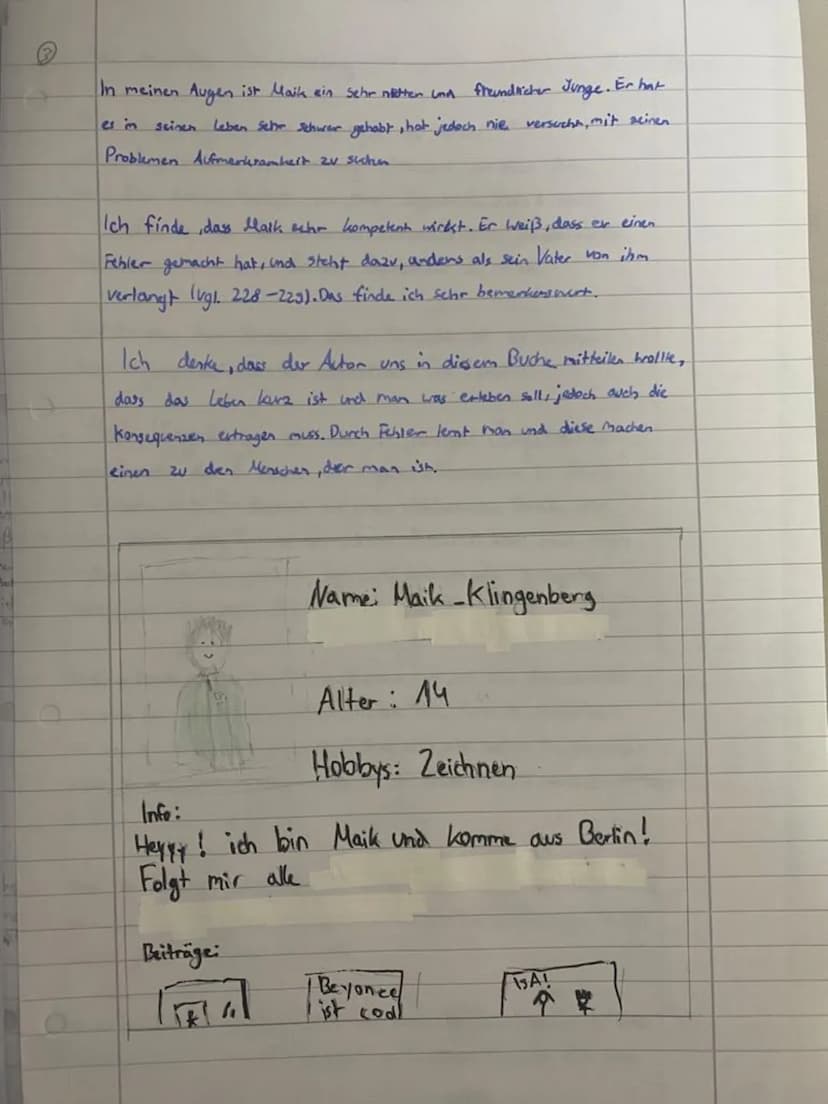 In meinen Augen ist Maik ein sehr netter und freundlicher Junge. Er hat
es in seinen Leben sehr schwer gehabt, hat jedoch nie versucht, mit seinen
Problemen Aufmerksamkeit zu suchen
Ich finde, dass Maik sehr kompetent wirkt. Er weiß, dass er einen
Fehler gemacht hat, und steht dazu, anders als sein Vater von ihm
verlangt (vgl. 228-229). Das finde ich sehr bemerkenswert.
Ich denke, dass der Autor uns in diesem Buche mitteilen wollte,
dass das Leben kurz ist und man was erleben soll, jedoch auch die
Konsequenzen ertragen muss. Durch Fehler lernt man und diese machen
einen zu den Menschen, der man ist.
Name: Maik_Klingenberg
Alter: 14
Hobbys: Zeichnen
Info:
Heyyy! ich bin Maik und komme aus Berlin!
Folgt mir alle
Beiträge:
Beyonce
ist cool
IsA!